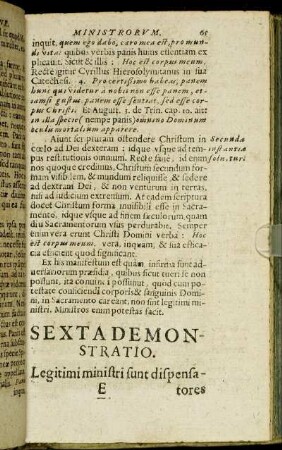 MINISTRORVM. 65
inquit, quem ego dabo, caro mea est, pro mun-
di vita: quibus verbis panis huius essentiam ex
plicauit. Sicut & illis: Hoc est corpus meum.
Recte igitur Cyrillus Hierosolymitanus in sua
Catechesi. 4. Pro certissimo habeas, panem
hunc qui videtur à nobis non esse panem, et-
iamsi gustus panem esse sentiat, sed esse cor-
pus Christi. Et August. 1. de Trin. cap. 10. ait
in illa specie (nempe panis) omnino Dominum
oculis mortalium apparere.
Aiunt scripturam ostendere Christum in
cœlo ad Dei dexteram: idque vsque ad tem-
pus restitutionis omnium. Recte sanè, id enim
nos quoque credimus, Christum secundum for-
mam visibilem, & mundum reliquisse, & sedere
ad dexteram Dei, & non venturum in terras,
nisi ad iudicium extremum. At eadem scriptura
docet Christum forma inuisibili esse in Sacra-
mento, idque vsque ad finem sæculorum, quam
diu Sacramentorum vsus perdurabit. Semper
enim vera erunt Christi Domini verba: Hoc
est corpus meum, vera, inquam, & sua effica-
cia efficient quod significant.
Secunda
instantia
soluturi
Ex his manifestum est quàm infirma sint ad-
uersariorum præsidia, quibus sicut tueri se non
possunt, ita conuinci possunt, quod cum po-
testate conficiendi corporis & sanguinis Domi-
ni, in Sacramento careant, non sint legitimi mi-
nistri. Ministros enim potestas facit.
SEXTA DEMON-
STRATIO.
Legitimi ministri sunt dispensa-
E tores